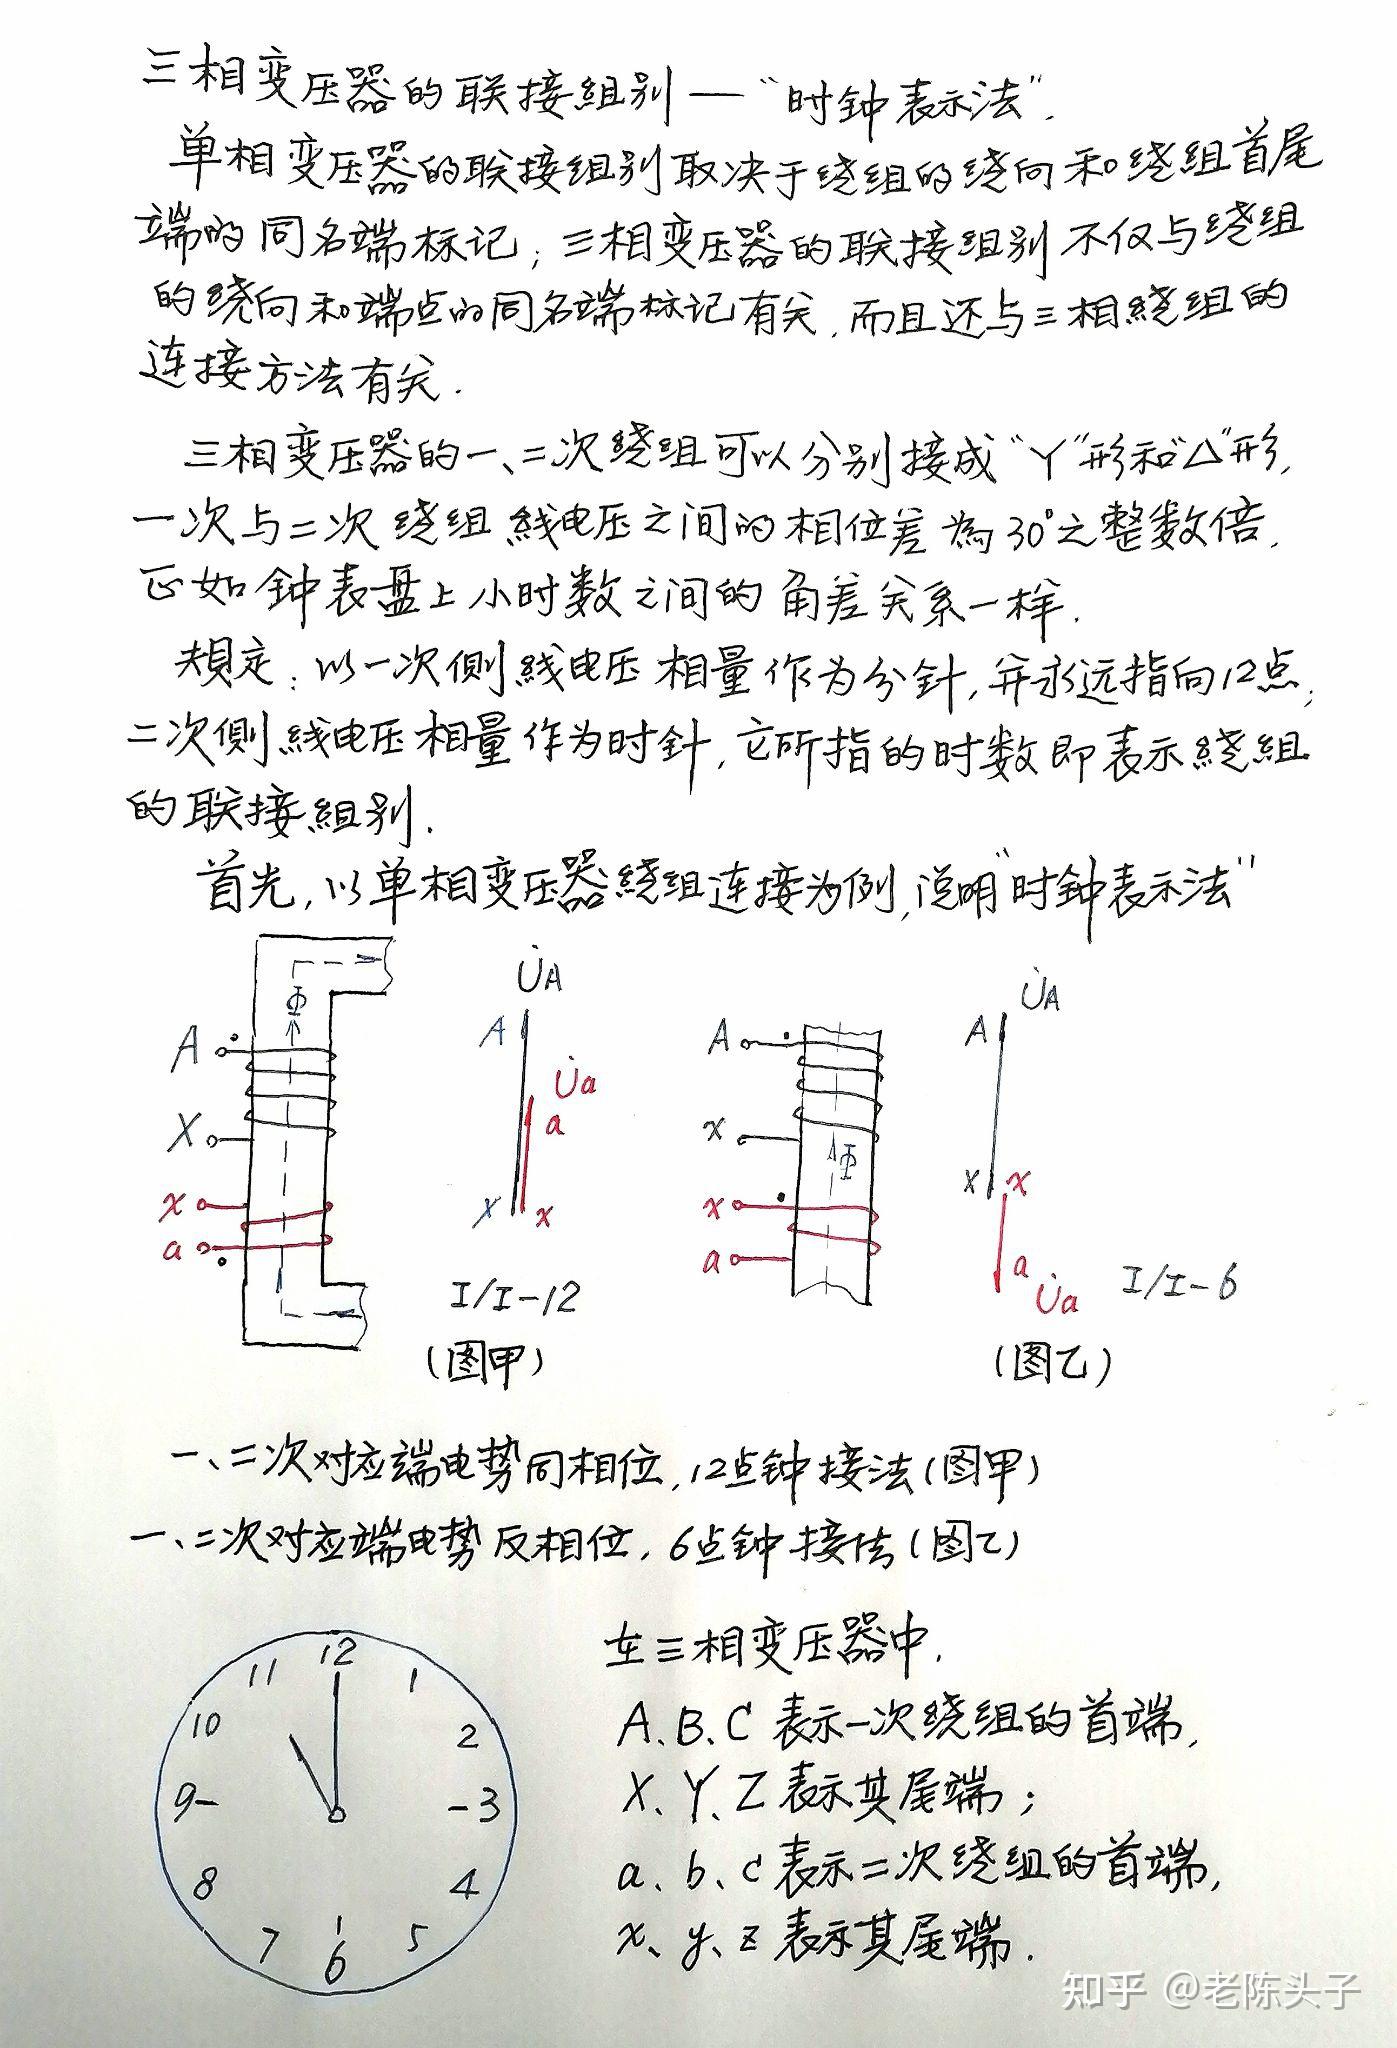 三相变压器的联接組别——“时钟表示法”.
单相变压器的联接组别取决于绕组的绕向和绕组首尾
端的同名端标记；三相变压器的联接组别不仅与绕组
的绕向和端点的同名端标记有关，而且还与三相繞组的
连接方法有关.
三相变压器的一、二次绕组可以分别接成“Y”形和“△”形,
一次与二次绕组線电压之间的相位差為30°之整数倍,
正如钟表盘上小时数之间的角差关系一样.
規定：以一次侧线电压相量作为分针,并永远指向12点;
二次侧线电压相量作为时针,它所指的时数即表示繞組
的联接組别.
首先,以单相变压器繞组连接为例,说明“时钟表示法”
Φ
A
X
x
a
U̇A
A
U̇a
a
X
x
I/I-12
(图甲)
A
x
Φ
x
a
U̇A
A
X
x
a
U̇a
I/I-6
(图乙)
一、二次对应端电势同相位,12点钟接法(图甲)
一、二次对应端电势反相位,6点钟接法(图乙)
12
1
2
-3
4
5
6
7
8
9-
10
11
在三相变压器中.
A、B、C表示一次绕组的首端,
X、Y、Z表示其尾端;
a、b、c表示二次绕组的首端,
x、y、z表示其尾端.
知乎 @老陈头子